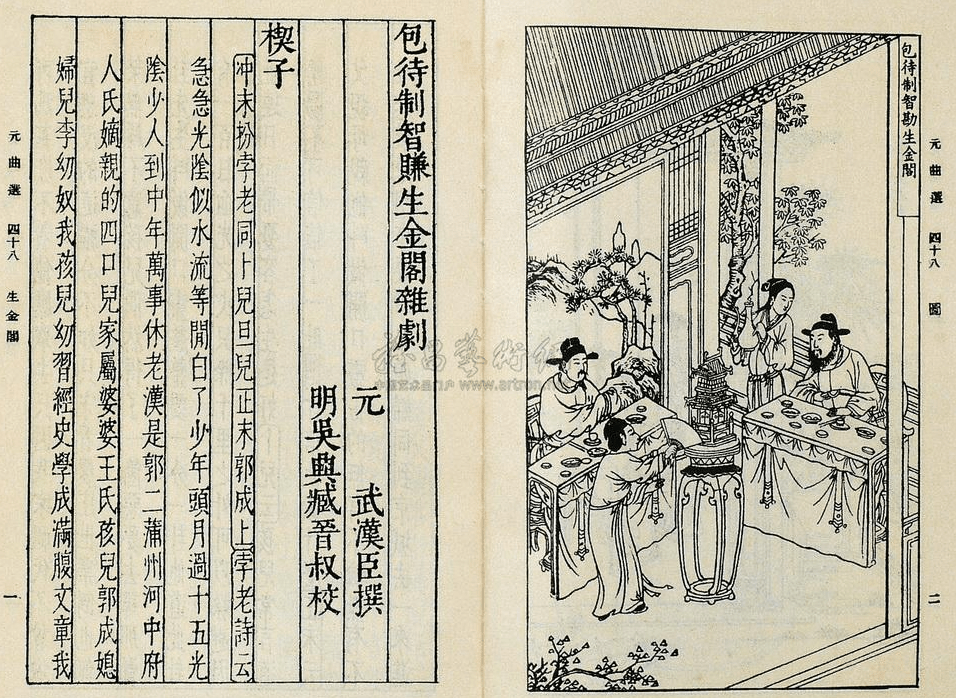 元曲選 四十八 圖 二
包待制智勘生金閣
包待制智賺生金閣雜劇
元 武漢臣撰
明吳興臧晉叔校
楔子
冲末扮孛老同卜兒旦兒正末郭成上孛老詩云
急急光陰似水流等閒白了少年頭月過十五光
陰少人到中年萬事休老漢是郭二蒲州河中府
人氏嫡親的四口兒家屬婆婆王氏孩兒郭成媳
婦兒李幼奴我孩兒幼習經史學成滿腹文章我
元曲選 四十八 生金閣 一
www.artron.net